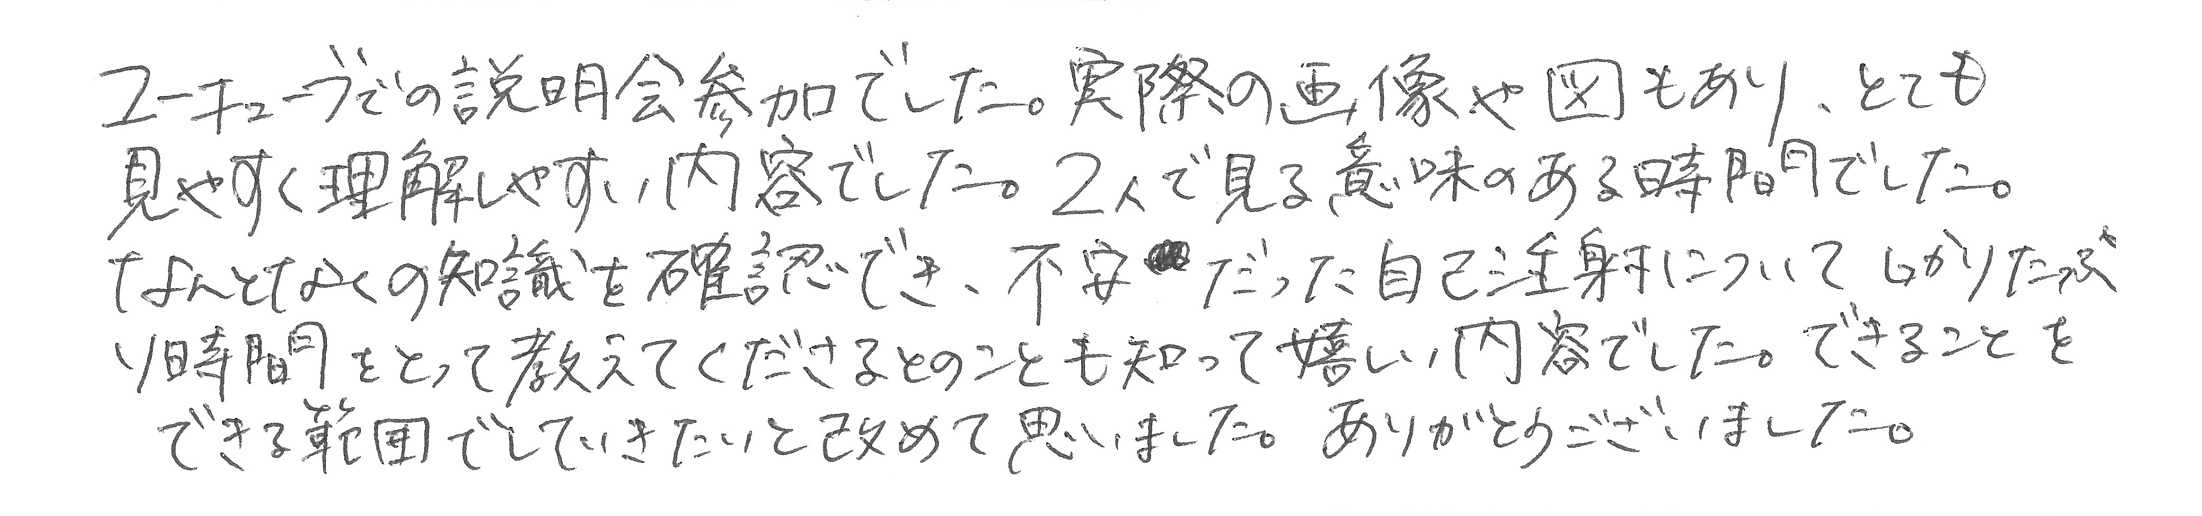 ユーチューブでの説明会参加でした。実際の画像や図もあり、とても
見やすく理解しやすい内容でした。2人で見る意味のある時間でした。
なんとなくの知識を確認でき、不安だった自己注射についてしっかりたっぷ
り時間をとって教えてくださるとのことも知って嬉しい内容でした。できることを
できる範囲でしていきたいと改めて思いました。ありがとうございました。